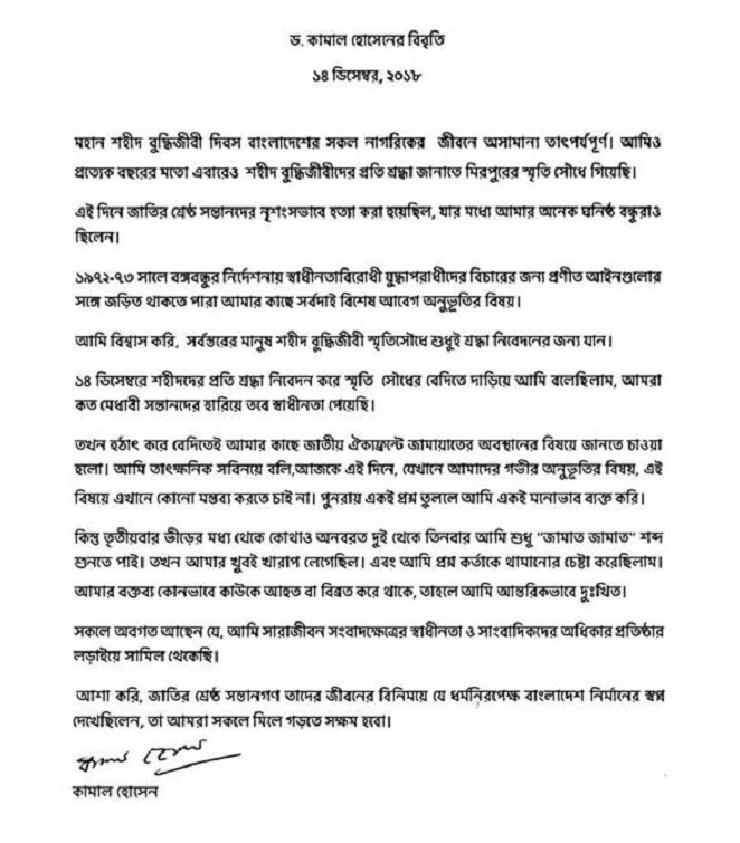 ড. কামাল হোসেনের বিবৃতি
১৪ ডিসেম্বর, ২০১৮
মহান শহীদ বুদ্ধিজীবী দিবস বাংলাদেশের সকল নাগরিকের জীবনে অসামান্য তাৎপর্যপূর্ণ। আমিও
প্রত্যেক বছরের মতো এবারেও শহীদ বুদ্ধিজীবীদের প্রতি শ্রদ্ধা জানাতে মিরপুরের স্মৃতি সৌধে গিয়েছি।
এই দিনে জাতির শ্রেষ্ঠ সন্তানদের নৃশংসভাবে হত্যা করা হয়েছিল, যার মধ্যে আমার অনেক ঘনিষ্ঠ বন্ধুরাও
ছিলেন।
১৯৭২-৭৩ সালে বঙ্গবন্ধুর নির্দেশনায় স্বাধীনতাবিরোধী যুদ্ধাপরাধীদের বিচারের জন্য প্রণীত আইনগুলোর
সঙ্গে জড়িত থাকতে পারা আমার কাছে সর্বদাই বিশেষ আবেগ অনুভূতির বিষয়।
আমি বিশ্বাস করি, সর্বস্তরের মানুষ শহীদ বুদ্ধিজীবী স্মৃতিসৌধে শুধুই শ্রদ্ধা নিবেদনের জন্য যান।
১৪ ডিসেম্বরে শহীদদের প্রতি শ্রদ্ধা নিবেদন করে স্মৃতি সৌধের বেদিতে দাড়িয়ে আমি বলেছিলাম, আমরা
কত মেধাবী সন্তানদের হারিয়ে তবে স্বাধীনতা পেয়েছি।
তখন হঠাৎ করে বেদিতেই আমার কাছে জাতীয় ঐক্যফ্রন্টে জামায়াতের অবস্থানের বিষয়ে জানতে চাওয়া
হলো। আমি তাৎক্ষনিক সবিনয়ে বলি,আজকে এই দিনে, যেখানে আমাদের গভীর অনুভূতির বিষয়, এই
বিষয়ে এখানে কোনো মন্তব্য করতে চাই না। পুনরায় একই প্রশ্ন তুললে আমি একই মনোভাব ব্যক্ত করি।
কিন্তু তৃতীয়বার ভীড়ের মধ্য থেকে কোথাও অনবরত দুই থেকে তিনবার আমি শুধু "জামাত জামাত" শব্দ
শুনতে পাই। তখন আমার খুবই খারাপ লেগেছিল। এবং আমি প্রশ্ন কর্তাকে থামানোর চেষ্টা করেছিলাম।
আমার বক্তব্য কোনভাবে কাউকে আহত বা বিব্রত করে থাকে, তাহলে আমি আন্তরিকভাবে দুঃখিত।
সকলে অবগত আছেন যে, আমি সারাজীবন সংবাদক্ষেত্রের স্বাধীনতা ও সাংবাদিকদের অধিকার প্রতিষ্ঠার
লড়াইয়ে সামিল থেকেছি।
আশা করি, জাতির শ্রেষ্ঠ সন্তানগণ তাদের জীবনের বিনিময়ে যে ধর্মনিরপেক্ষ বাংলাদেশ নির্মানের স্বপ্ন
দেখেছিলেন, তা আমরা সকলে মিলে গড়তে সক্ষম হবো।
কামাল হোসেন
কামাল হোসেন